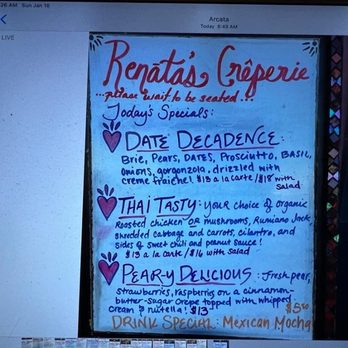 :26 AM Sun Jan 16
Arcata
Today 8:43 AM
LIVE
Renata's Crêperie
...please wait to be seated...
Today's Specials:
DATE DECADENCE:
Brie, Pears, DATES, Prosciutto, BASIL,
Onions, gorgonzola, drizzled with
creme fraiche! $13 a la carte/$18 with
Salad
THAI TASTY: Your choice of organic
Roasted chicken OR mushrooms, Rumiano Jack,
shredded cabbage and carrots, cilantro, and
sides of sweet chili and peanut sauce!
$13 a la carte/$16 with salad
PEAR-Y DELICIOUS: Fresh pear,
strawberries, raspberry on a cinnamon-
butter-sugar crepe topped with whipped
cream & nutella! $13
$5.50
DRINK SPECIAL: Mexican Mocha